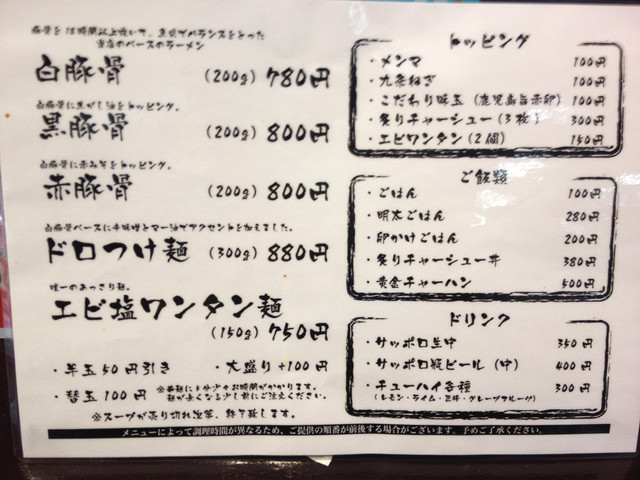 豚骨を18時間以上炊いて、魚介でバランスをとった
当店のベースのラーメン
白豚骨 (200g) 780円
白豚骨に焦がし油をトッピング。
黒豚骨 (200g) 800円
白豚骨に赤みそをトッピング。
赤豚骨 (200g) 800円
白豚骨ベースに辛味噌とマー油でアクセントを加えました。
ドロつけ麺 (300g) 880円
唯一のあっさり麺。
エビ塩ワンタン麺
(150g) 750円
・半玉50円引き ・大盛り+100円
・替玉100円
※替麺に1分少々お時間がかかります。
麺が無くなる少し前にご注文ください。
※スープが売り切れ次第、終了致します。
トッピング
・メンマ 100円
・九条ねぎ 100円
・こだわり味玉(鹿児島旨赤卵) 100円
・炙りチャーシュー(3枚) 300円
・エビワンタン(2個) 150円
ご飯類
・ごはん 100円
・明太ごはん 280円
・卵かけごはん 200円
・炙りチャーシュー丼 380円
・黄金チャーハン 500円
ドリンク
・サッポロ生中 350円
・サッポロ瓶ビール(中) 400円
・チューハイ各種 300円
(レモン・ライム・巨峰・グレープフルーツ)
メニューによって調理時間が異なるため、ご提供の順番が前後する場合がございます。予めご了承ください。